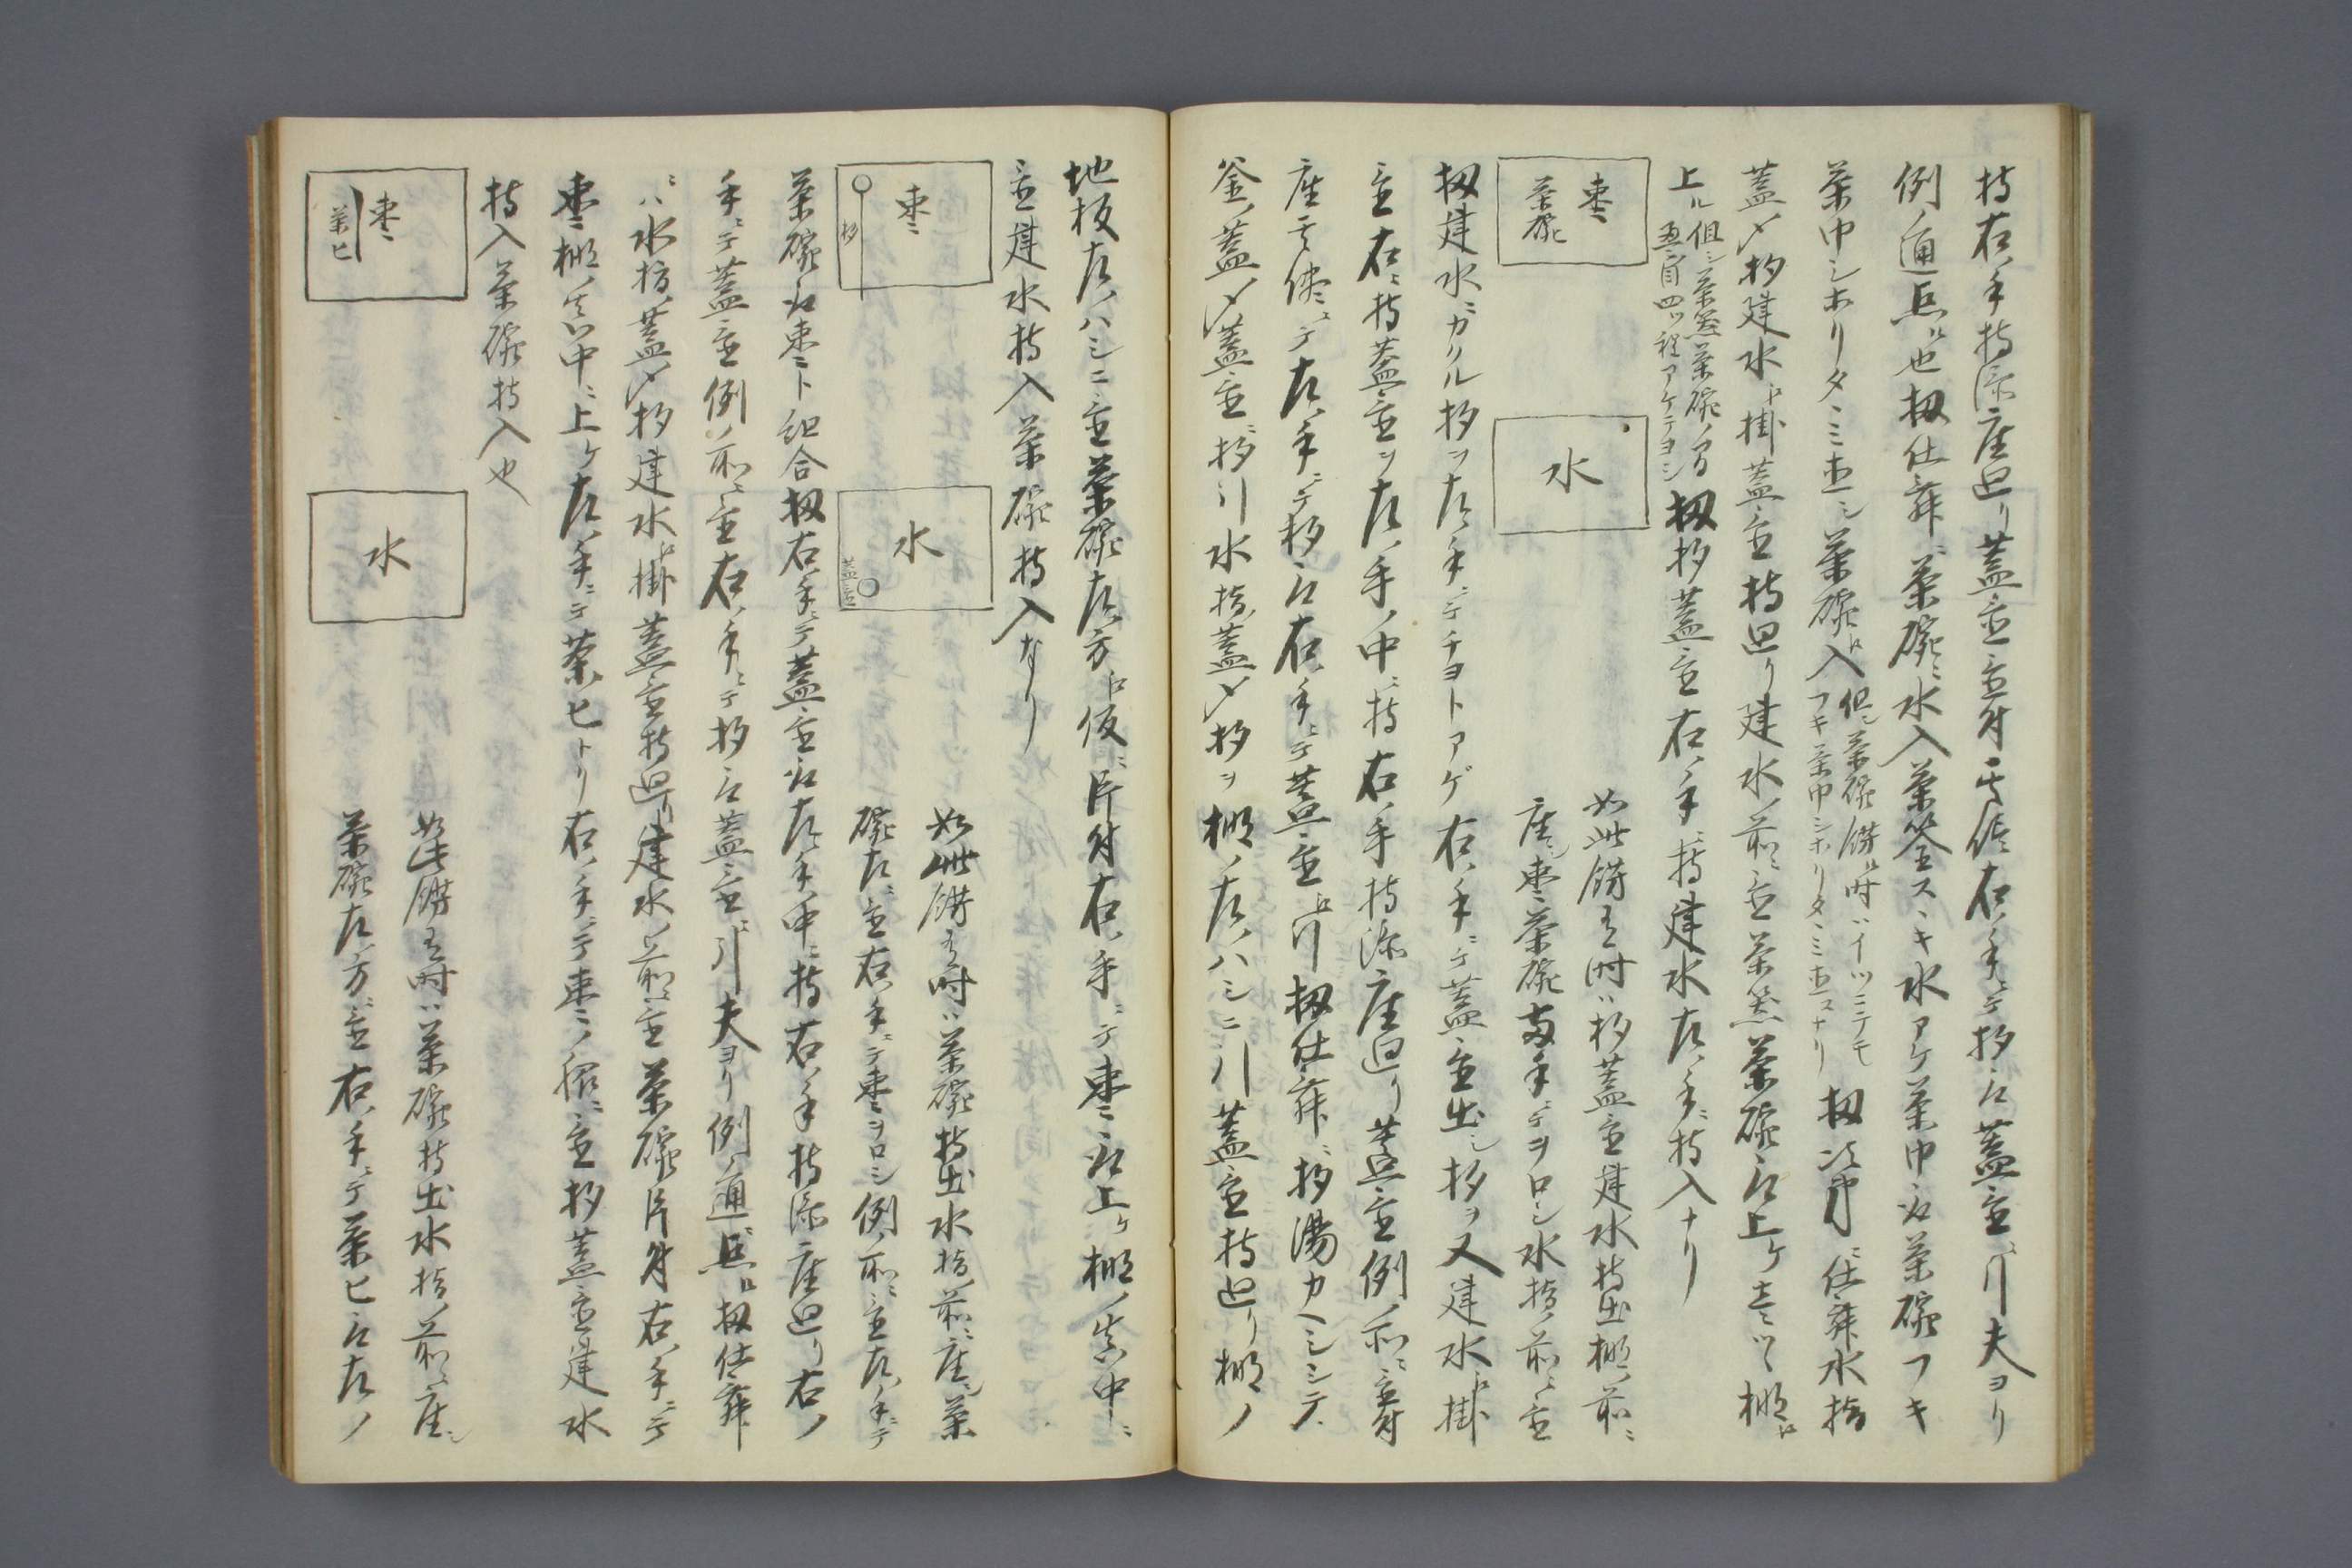 持右ノ手持添座廻リ蓋置置付其侭右ノ手ニテ杓取蓋置ニ引夫ヨリ
例ノ通点ル也扨仕舞ニ茶碗ニ水入茶筌スヽキ水アケ茶巾取茶碗フキ
茶巾シホリタヽミ直シ茶碗ヘ入
但シ茶碗餝ル時ハイツニテモ
フキ茶巾シホリタヽミ直スナリ
扨ニ仕舞水指
蓋〆杓建水ヘ掛蓋置持廻リ建水ノ前ニ置茶筅茶碗取上ケ棚ヘ
上ル
但シ茶筅茶碗ノ間
畳目四ツ程アケテヨシ
扨杓蓋置右ノ手ニ持建水左ノ手ニ持入ナリ
棗
茶碗
水
如此餝有時ハ杓蓋置建水持出棚ノ前ニ
座シ棗茶碗両手ニテヲロシ水指ノ前ニ置
扨建水ニカヽル杓ヲ左ノ手ニテチヨトアゲ右ノ手ニテ蓋置出シ杓ヲ又建水ヘ掛
置右ニ持蓋置ヲ左ノ手ノ中ニ持右ノ手持添座廻リ蓋置例ノ所ニ置付
座其侭ニテ左ノ手ニテ杓取右ノ手ニテ蓋置ヘ引扨仕舞ニ杓湯カヘシシテ
釜ノ蓋〆蓋置ニ杓引水指ノ蓋〆杓ヲ棚ノ左ノハシニ引蓋置持廻リ棚ノ
地板左ノハシニ置茶碗左ノ方ヘ仮ニ片付右ノ手ニテ棗取上ケ棚ノ真中ニ
置建水持入茶碗持入なり
棗
杓
水
蓋置
如此餝有時ハ茶碗持出水指ノ前ニ座シ茶
碗左ニ置右ノ手ニテ棗ヲロシ例ノ所ニ置左ノ手ニテ
茶碗取棗ト組合扨右ノ手ニテ蓋置取左ノ手ノ中ニ持右ノ手持添座廻リ右ノ
手ニテ蓋置例ノ所ニ置右ノ手ニテ杓取蓋置ニ引夫ヨリ例ノ通ニ点ル扨仕舞
ニハ水指ノ蓋〆杓建水ヘ掛蓋置持廻リ建水ノ前ニ置茶碗片付右ノ手ニテ
棗棚ノ真中ニ上ケ左ノ手ニテ茶匕トリ右ノ手ニテ棗ノ脇ニ置杓蓋置建水
持入茶碗持入也
棗
茶匕
水
如此餝有時ハ茶碗持出水指ノ前ニ座シ
茶碗左ノ方ニ置右ノ手ニテ茶匕取左ノ